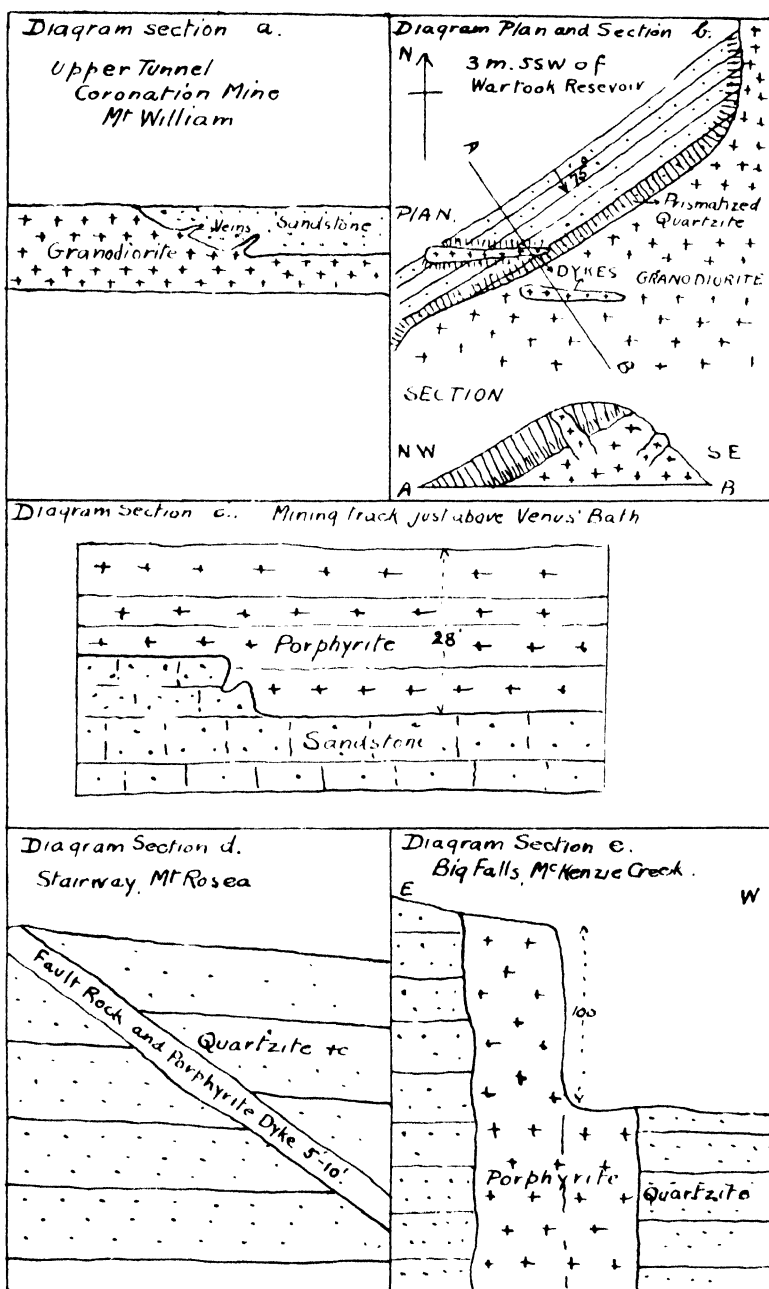 Diagram section a.
Upper Tunnel
Coronation Mine
Mt William
Veins
Sandstone
Granodiorite
Diagram Plan and Section b.
N
3 m. SSW of
Wartook Reservoir
A
75°
PLAN.
Prismatized
Quartzite
DYKES
GRANODIORITE
B
SECTION
NW
SE
A
B
Diagram Section c.. Mining track just above Venus' Bath
Porphyrite
28'
Sandstone
Diagram Section d.
Stairway, Mt Rosea
Quartzite +c
Fault Rock and Porphyrite Dyke 5'-10'.
Diagram Section e.
Big Falls, McKenzie Creek.
E
W
100
Porphyrite
Quartzite